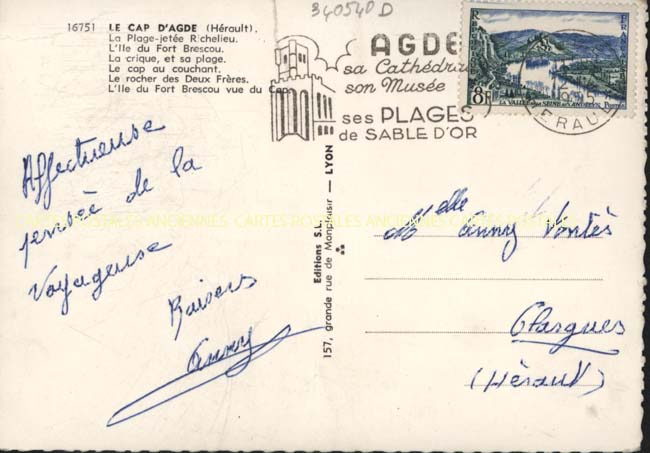 340540 D
16751 LE CAP D'AGDE (Hérault).
La Plage-jetée Richelieu.
L'Ile du Fort Brescou.
La crique, et sa plage.
Le cap au couchant.
Le rocher des Deux Frères.
L'Ile du Fort Brescou vue du Cap.
AGDE
sa Cathédrale
son Musée
ses PLAGES
de SABLE D'OR
8F
LA VALLÉE DE LA SEINE AUX ANDELYS
POSTES
HERAULT
Affectueuse
pensée de la
Voyageuse
Baisers
Anny
Editions S.L.
157, grande rue de Monplaisir — LYON
Melle Anny Vontès
Olargues
(Hérault)
CARTES POSTALES ANCIENNES CARTES POSTALES ANCIENNES CARTES POSTALES ANCIENNES